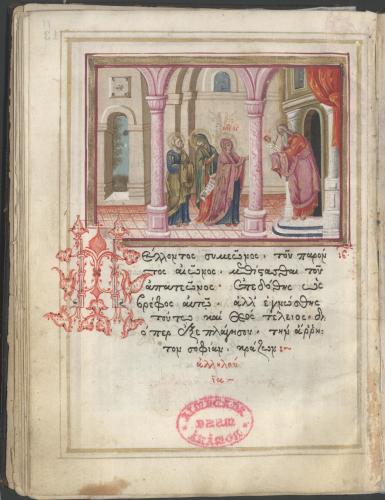 Μέλλοντος συμεῶνος· τοῦ παρόν
τος αἰῶνος· μεθίστασθαι τοῦ
ἀπατεῶνος· ἐπεδόθης ὡς
βρέφος αὐτῶ· ἀλλ' ἐγνώσθης
τούτω καὶ θεὸς τέλειος· δι
ὅπερ ἐξεπλάγη σου· τὴν ἄρρη
τον σοφίαν· κράζων :~
ἀλληλού
ϊα :~